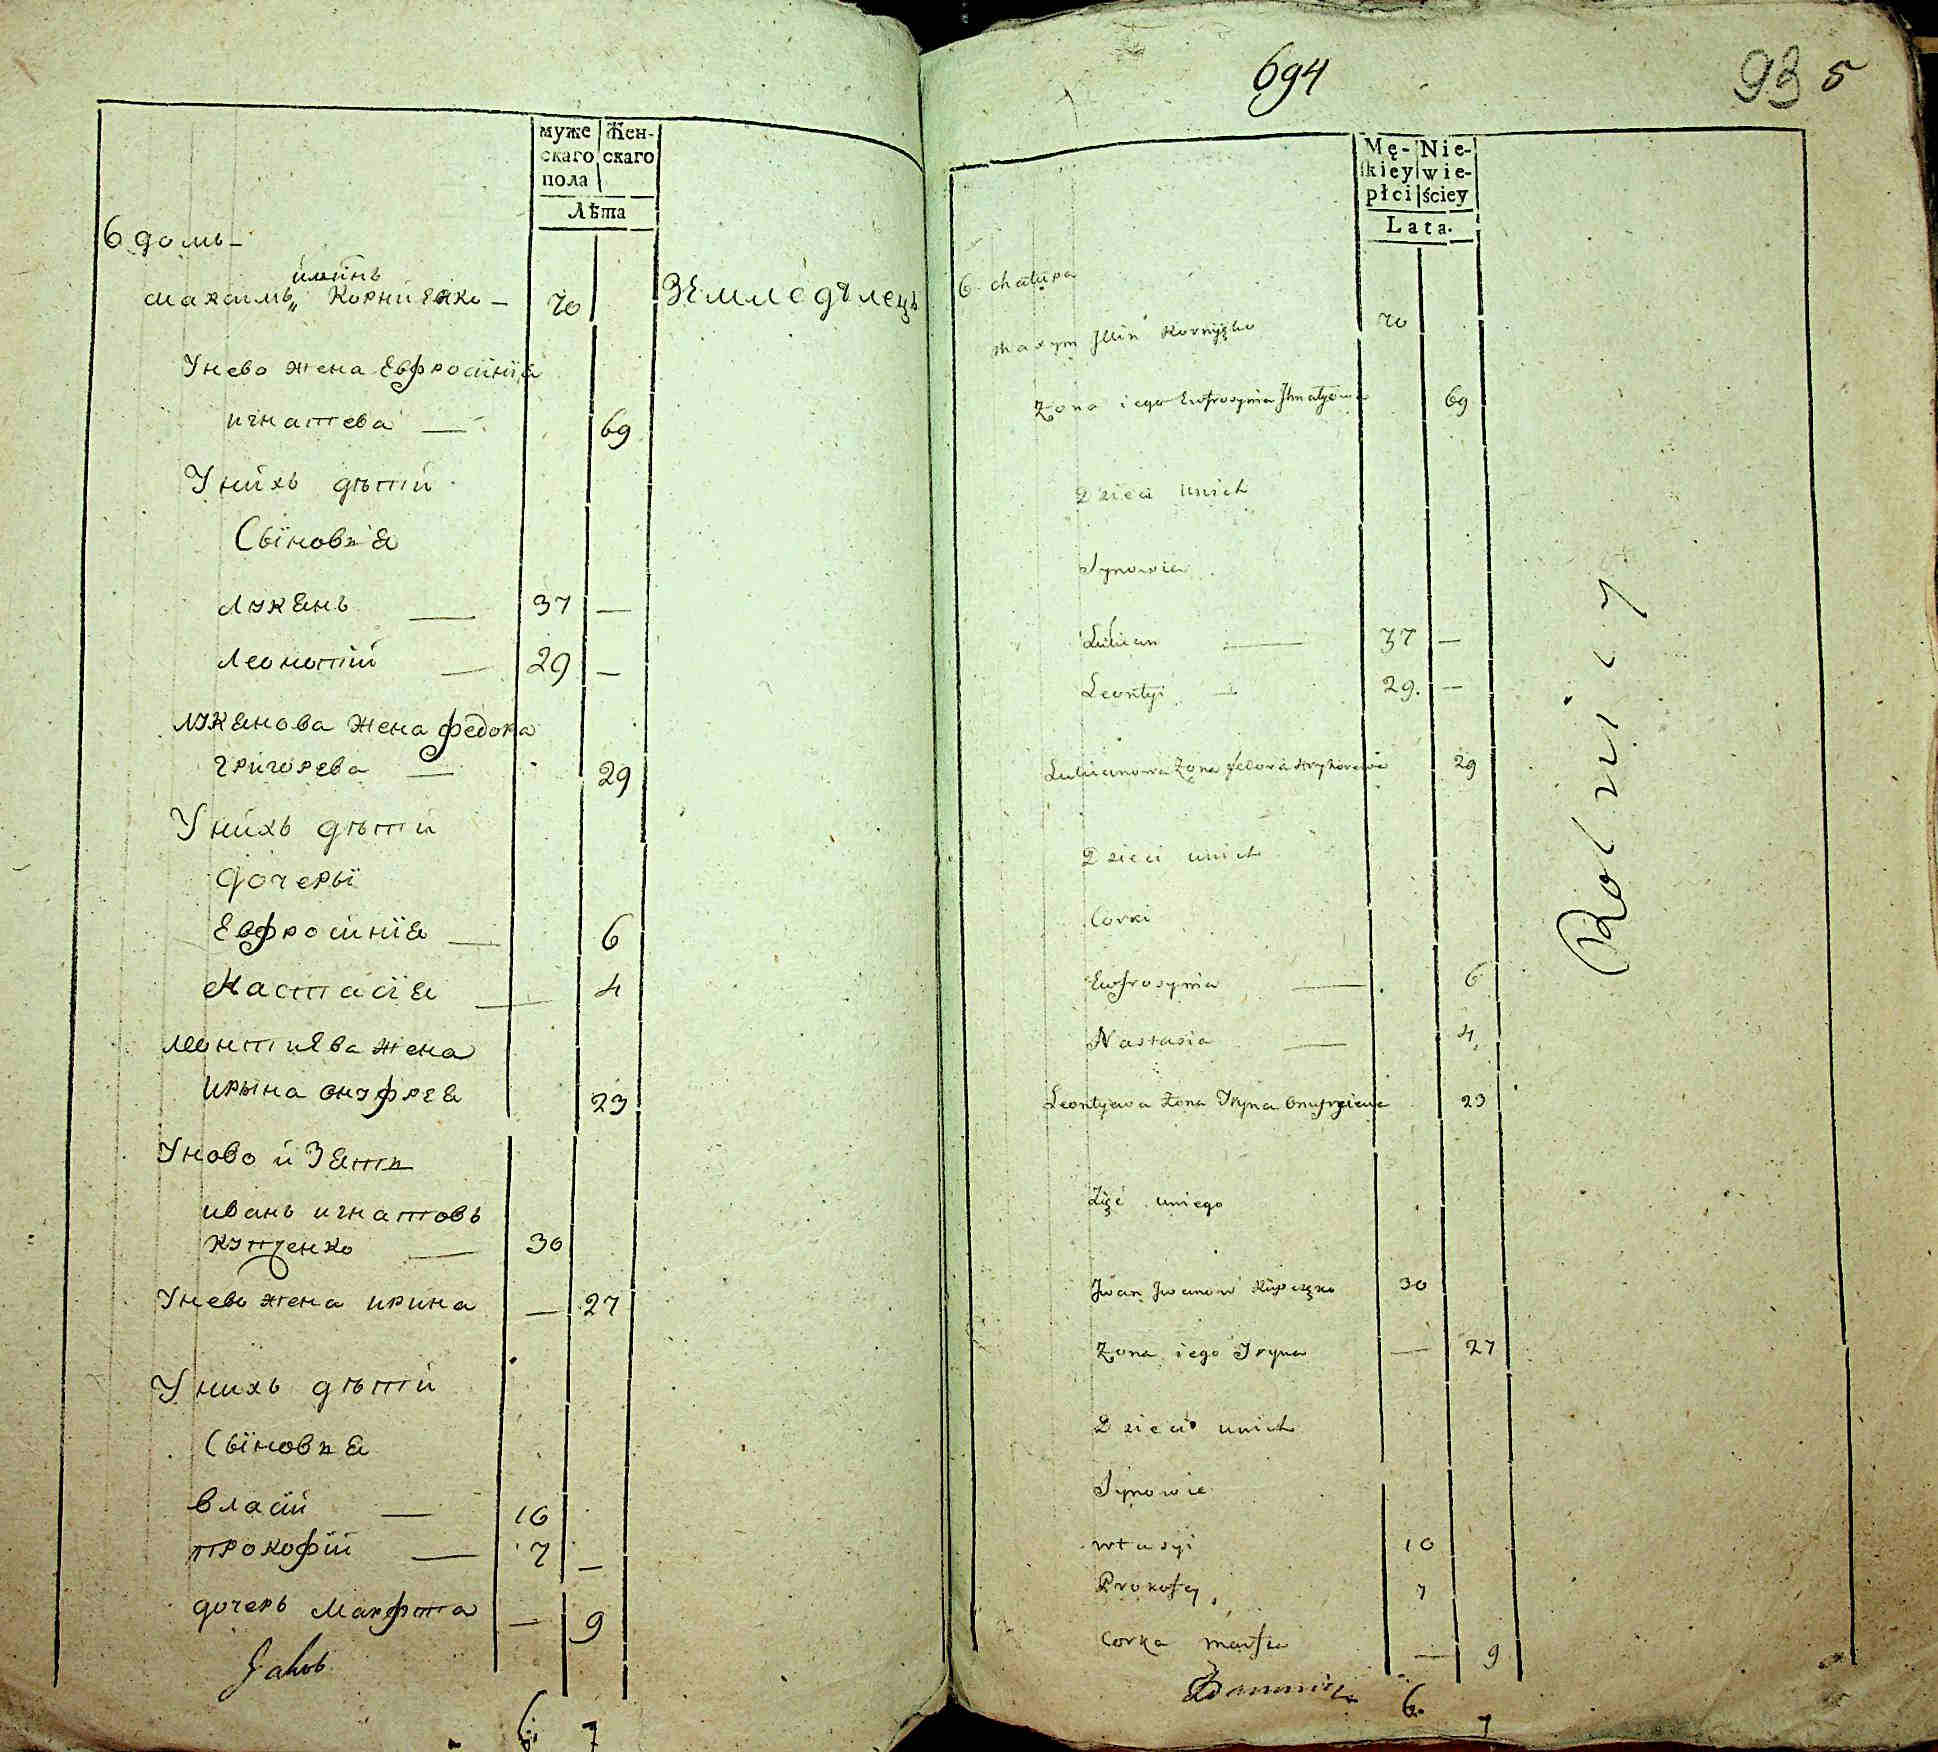 муже
скаго
пола
Жен-
скаго
Лѣта
6 домъ
иминъ
махимъ Корниенко 70 Землѣдѣлецъ
Унево жена Евфросинїя
игнатева 69
Унихъ дѣти
Сыновия
Лукянъ 37 —
Леонтий 29 —
Лукянова жена федора
григорева 29
Унихъ дѣти
дочеры
Евфросинїя 6
Настасїя 4
Леонтиева жена
ирына онуфрея 23
Уново и Зяти
иванъ игнатовъ
30
Унево жена ирина — 27
Унихъ дѣти
Сыновия
власий 16
прокофий 7 —
дочеръ Марфта — 9
Jakob
6. 7
694
93 5
Mę-
skiey
płci
Nie-
wie-
ściey
Lata.
6 chałupa
Maxym Jllin 70
Zona iego Eufrosynia Jhnatyowa 69
Dzieci unich
Synowie
Lukian 37 —
Leontyi 29. —
Lukianowa Zona fedora Hryhorewa 29
Dzieci unich
Corki
Eufrosynia 6
Nastasia 4
Leontyewa Zona Jryna Onufryiewa 23
Zięć uniego
Jwan Jwanow 30
Zona iego Jryna — 27
Dzieci unich
Synowie
własyi 10
Prokofey 7
Corka marfa — 9
6. 7
Rolnicy